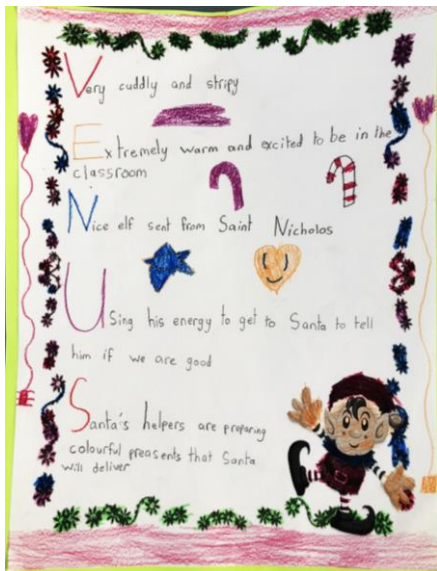 Very cuddly and stripy
Extremely warm and excited to be in the
classroom
Nice elf sent from Saint Nicholas
Using his energy to get to Santa to tell
him if we are good
Santa's helpers are preparing
colourful preasents that Santa
will deliver